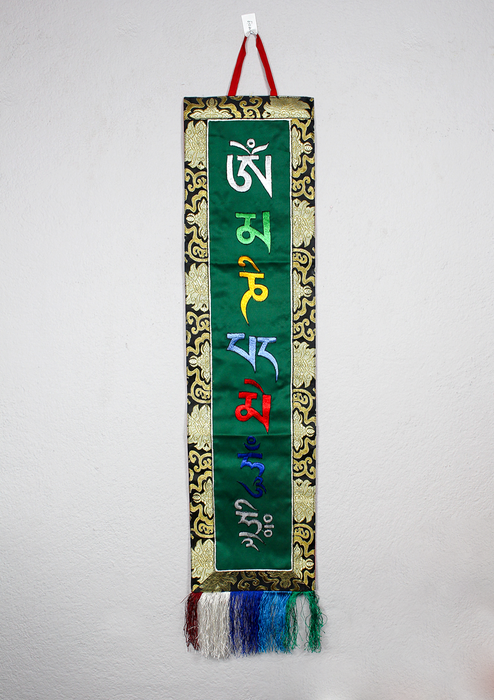 ཨོཾ
མ
ཎི
པད
མེ
ཧཱུྃ
ཧྲཱིཿ